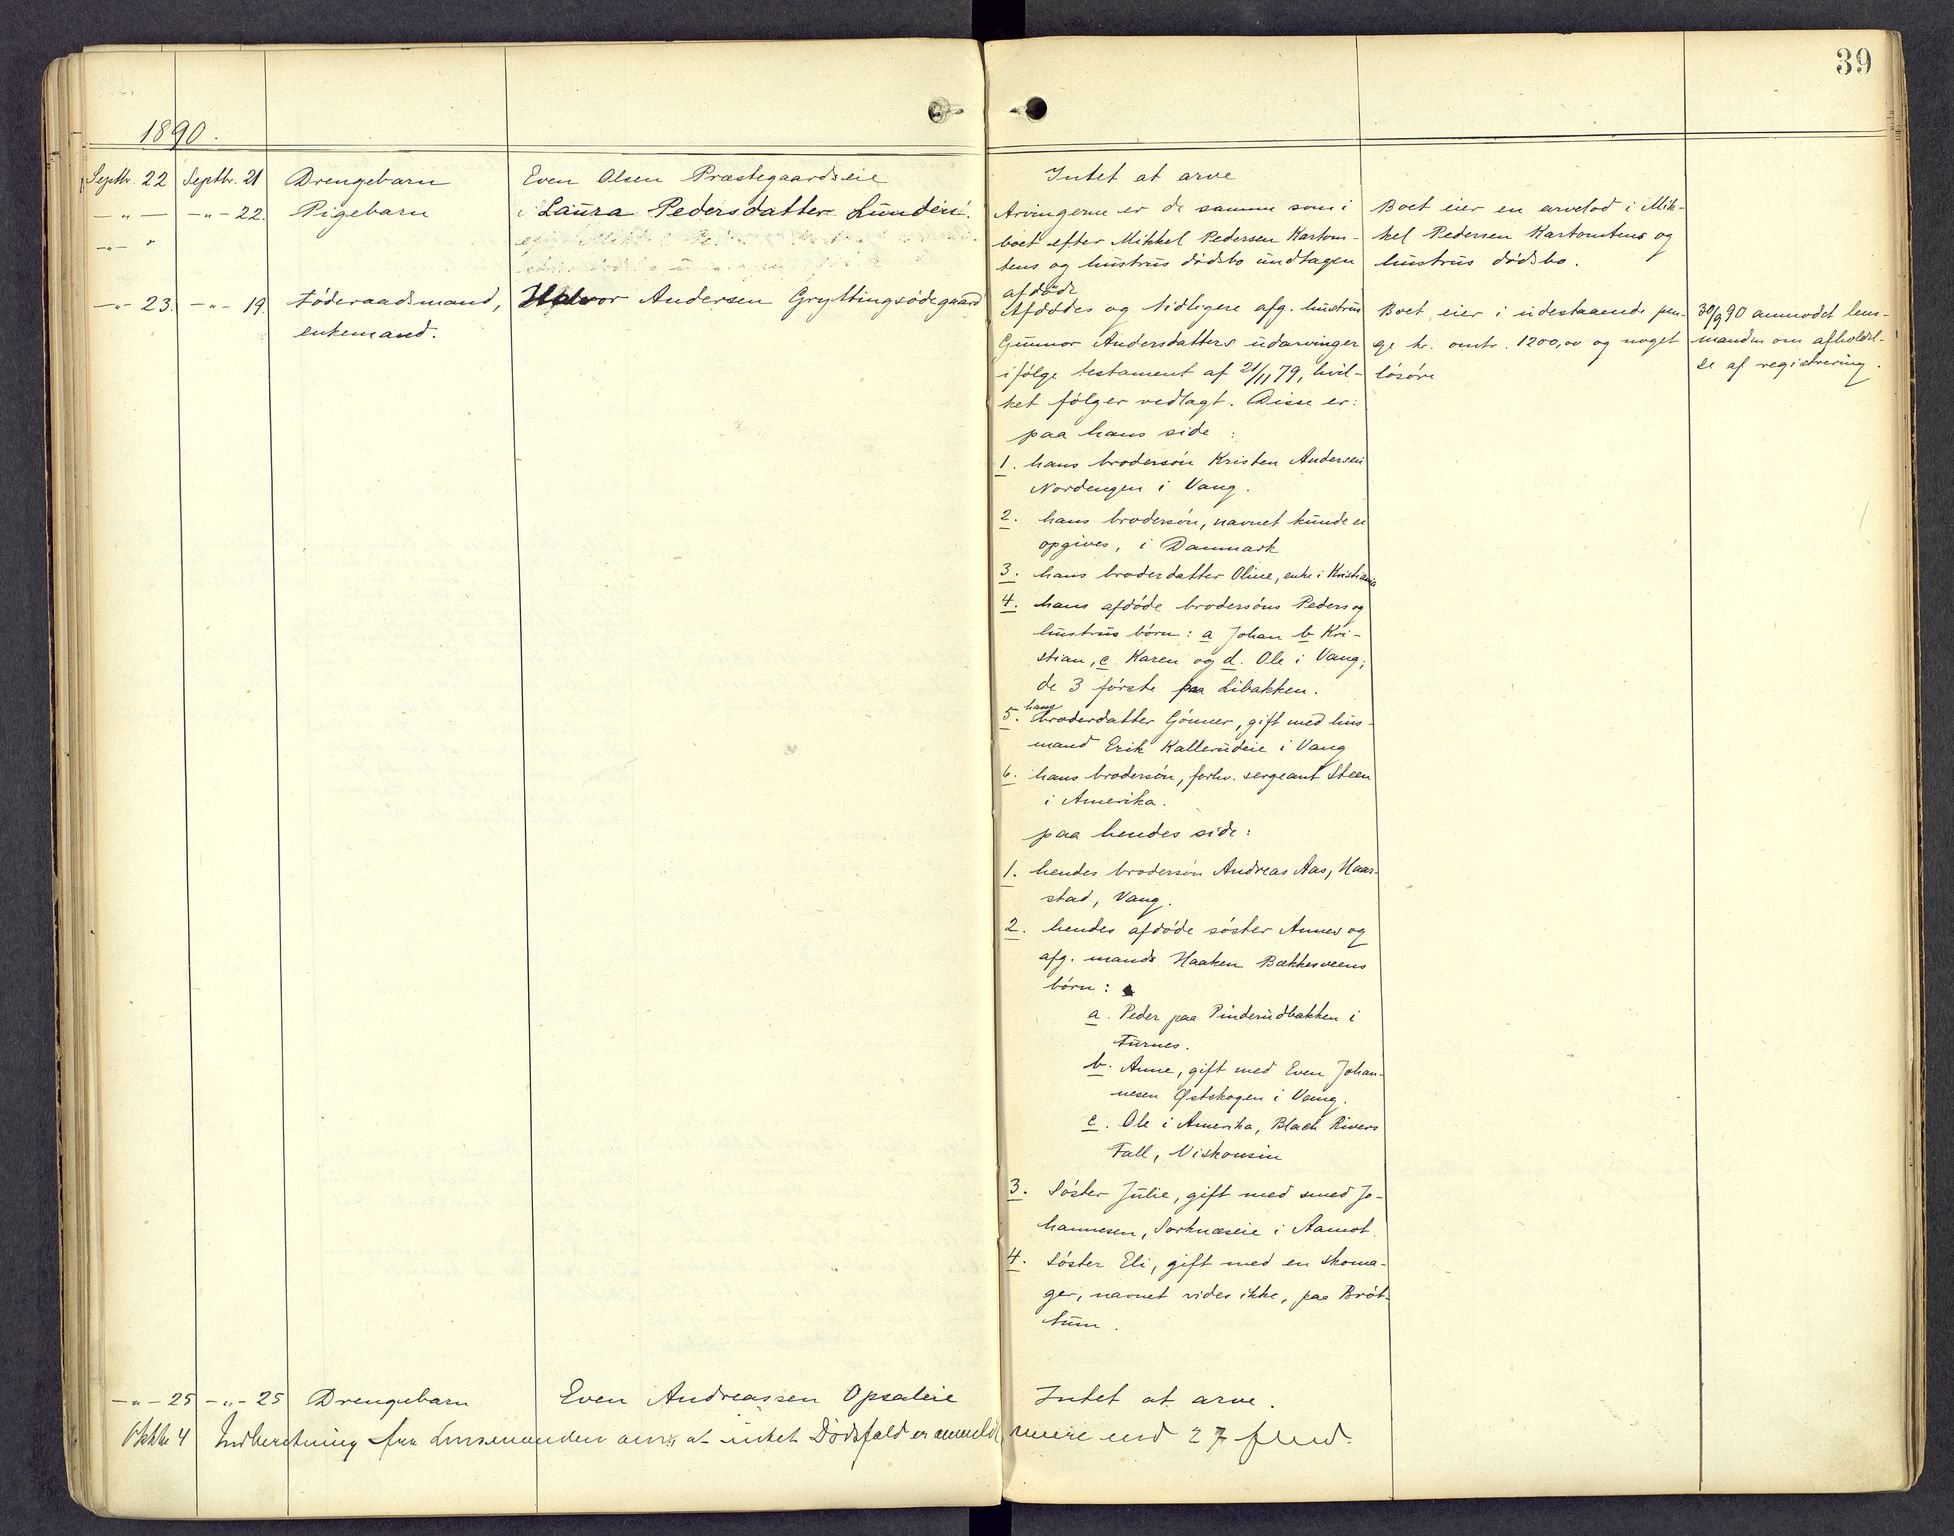 39
1890.
Septbr. 22 Septbr. 21 Drengebarn Even Olsen Præstegaardseie Intet at arve
— " — — " — 22. Pigebarn Laura Pedersdatter Lundeie. Arvingerne er de samme som i
boet efter Mikkel Pedersen Kartom-
tens og hustrus dødsbo undtagen
afdøde
Boet eier en arvelod i Mik-
kel Pedersen Kartomtens og
hustrus dødsbo.
— " — "
— " — 23. — " — 19. Føderaadsmand, Halvor Andersen Gryttingsødegaard
enkemand.
Afdødes og tidligere afg. hustrus
Gunnor Andersdatters udarvinger
ifølge testament af 21/11 79, hvil-
ket følger vedlagt. Disse er:
paa hans side:
1. hans brodersøn Kristen Andersen
Nordengen i Vang.
2. hans brodersøn, navnet kunde ei
opgives, i Danmark
3. hans broderdatter Oline, enke i Kristiania
4. hans afdøde brodersøns Peders og
hustrus børn: a Johan b Kri-
stian, c. Karen og d. Ole i Vang;
de 3 første paa Libakken.
5. hans broderdatter Gønner, gift med hus-
mand Erik Kallerudeie i Vang
6. hans brodersøn, forhv. sergeant Steen
i Amerika.
paa hendes side:
1. hendes brodersøn Andreas Aas, Haar-
stad, Vang.
2. hendes afdøde søster Annes og
afg. mands Haaken Bækkesveens
børn:
a. Peder paa Pinderudbakken i
Furnes.
b. Anne, gift med Even Johan-
nesen Østskogen i Vang.
c. Ole i Amerika, Black Rivers
Fall, Viskonsin
3. Søster Julie, gift med smed Jo-
hannesen, Sorknæseie i Aamot.
4. Søster Eli, gift med en skoma-
ger, navnet vides ikke, paa Brøt-
tum.
Boet eier i udestaaende pen-
ge kr. omtr. 1200,00 og noget
løsøre
30/9 90 anmodet lens-
manden om afholdel-
se af registrering.
— " — 25 — " — 25 Drengebarn Even Andreassen Opsaleie Intet at arve.
Oktbr 4 Indberetning fra Lensmanden om, at intet Dødsfald er anmeldt, mere end 27